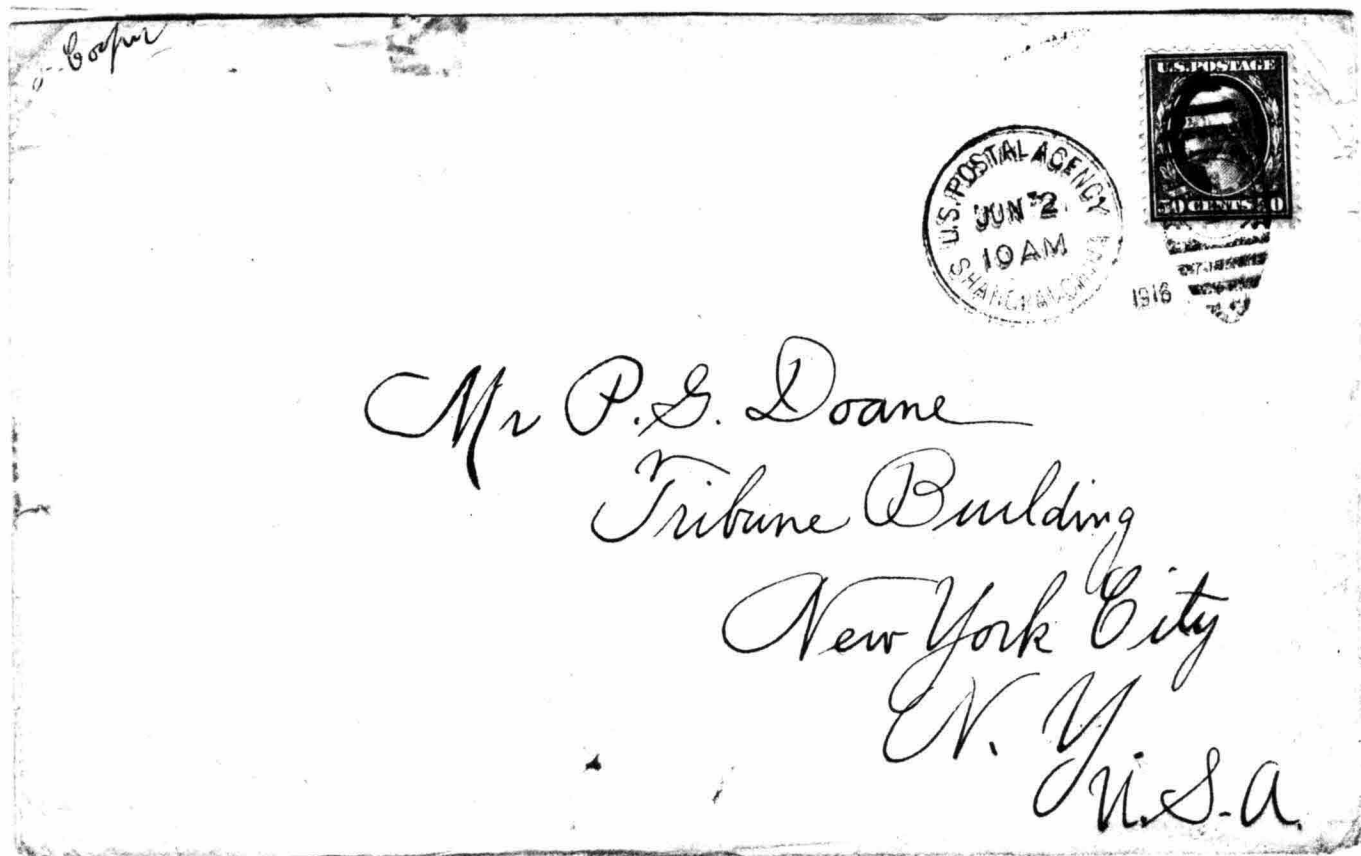 Cooper
U.S. POSTAGE
50 CENTS 50
U.S. POSTAL AGENCY
JUN 2
10 AM
SHANGHAI CHINA
1916
Mr P. G. Doane
Tribune Building
New York City
N. Y.
U.S.A.